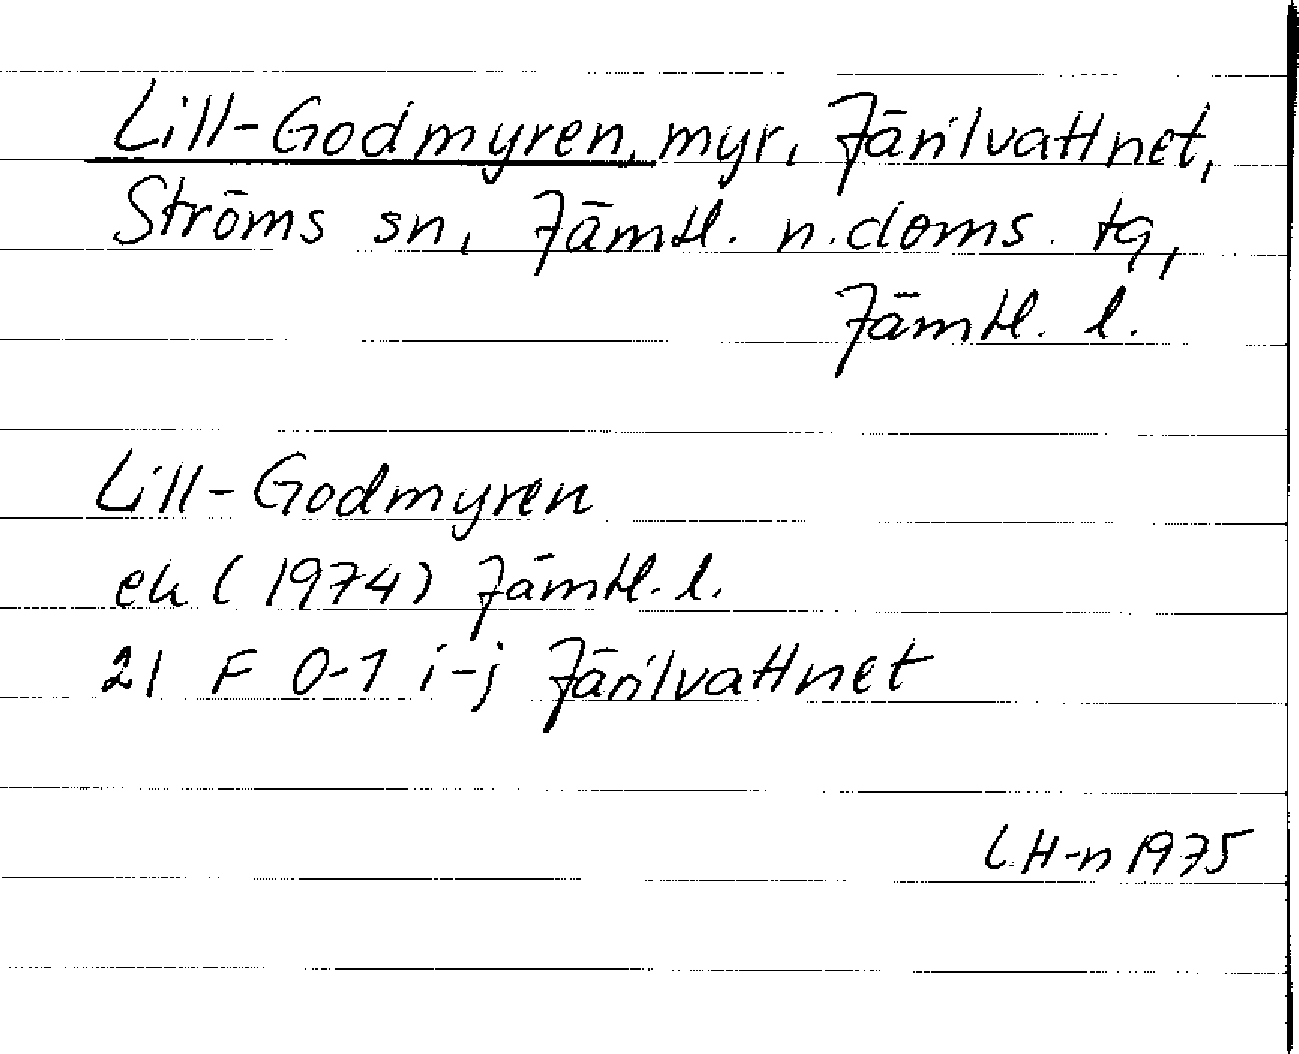 Lill-Godmyren, myr, Järilvattnet,
Ströms sn, Jämtl. n. doms. tg,
Jämtl. l.
Lill-Godmyren
ek (1974) Jämtl. l.
21 F 0-1 i-j Järilvattnet
LH-n 1975